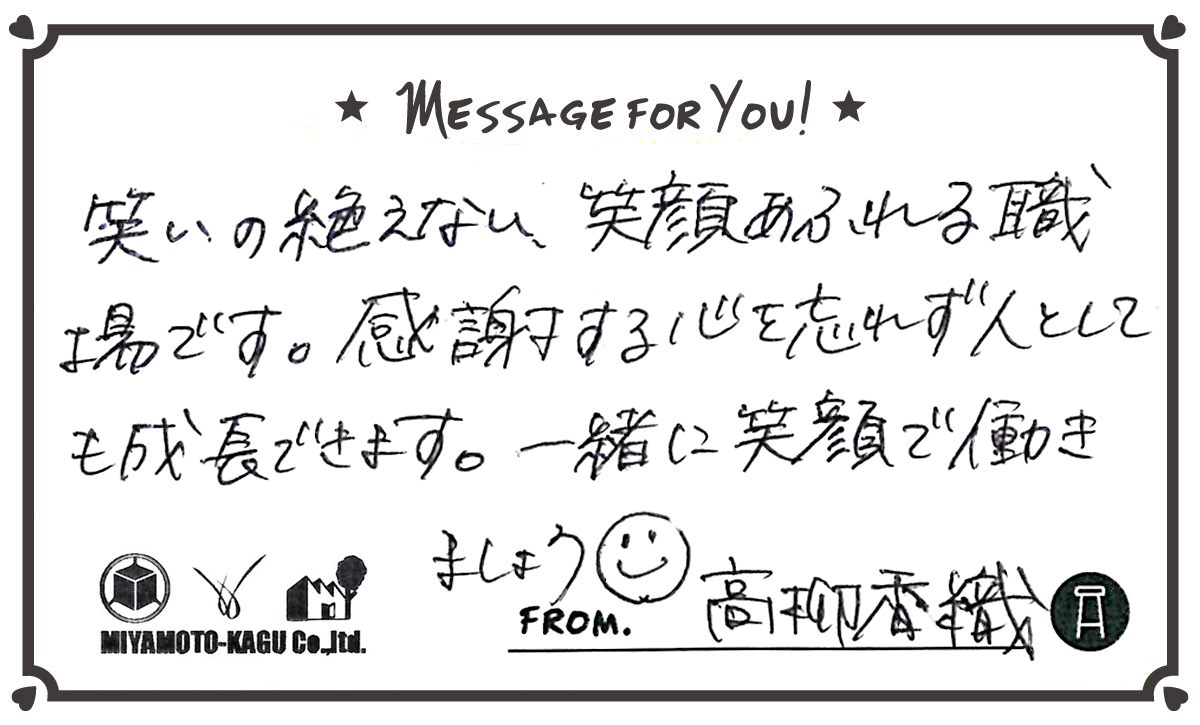 ★ MESSAGE FOR YOU! ★
笑いの絶えない、笑顔あふれる職
場です。感謝する心を忘れず人として
も成長できます。一緒に笑顔で働き
ましょう
FROM. 高柳香織
MIYAMOTO-KAGU Co.,ltd.